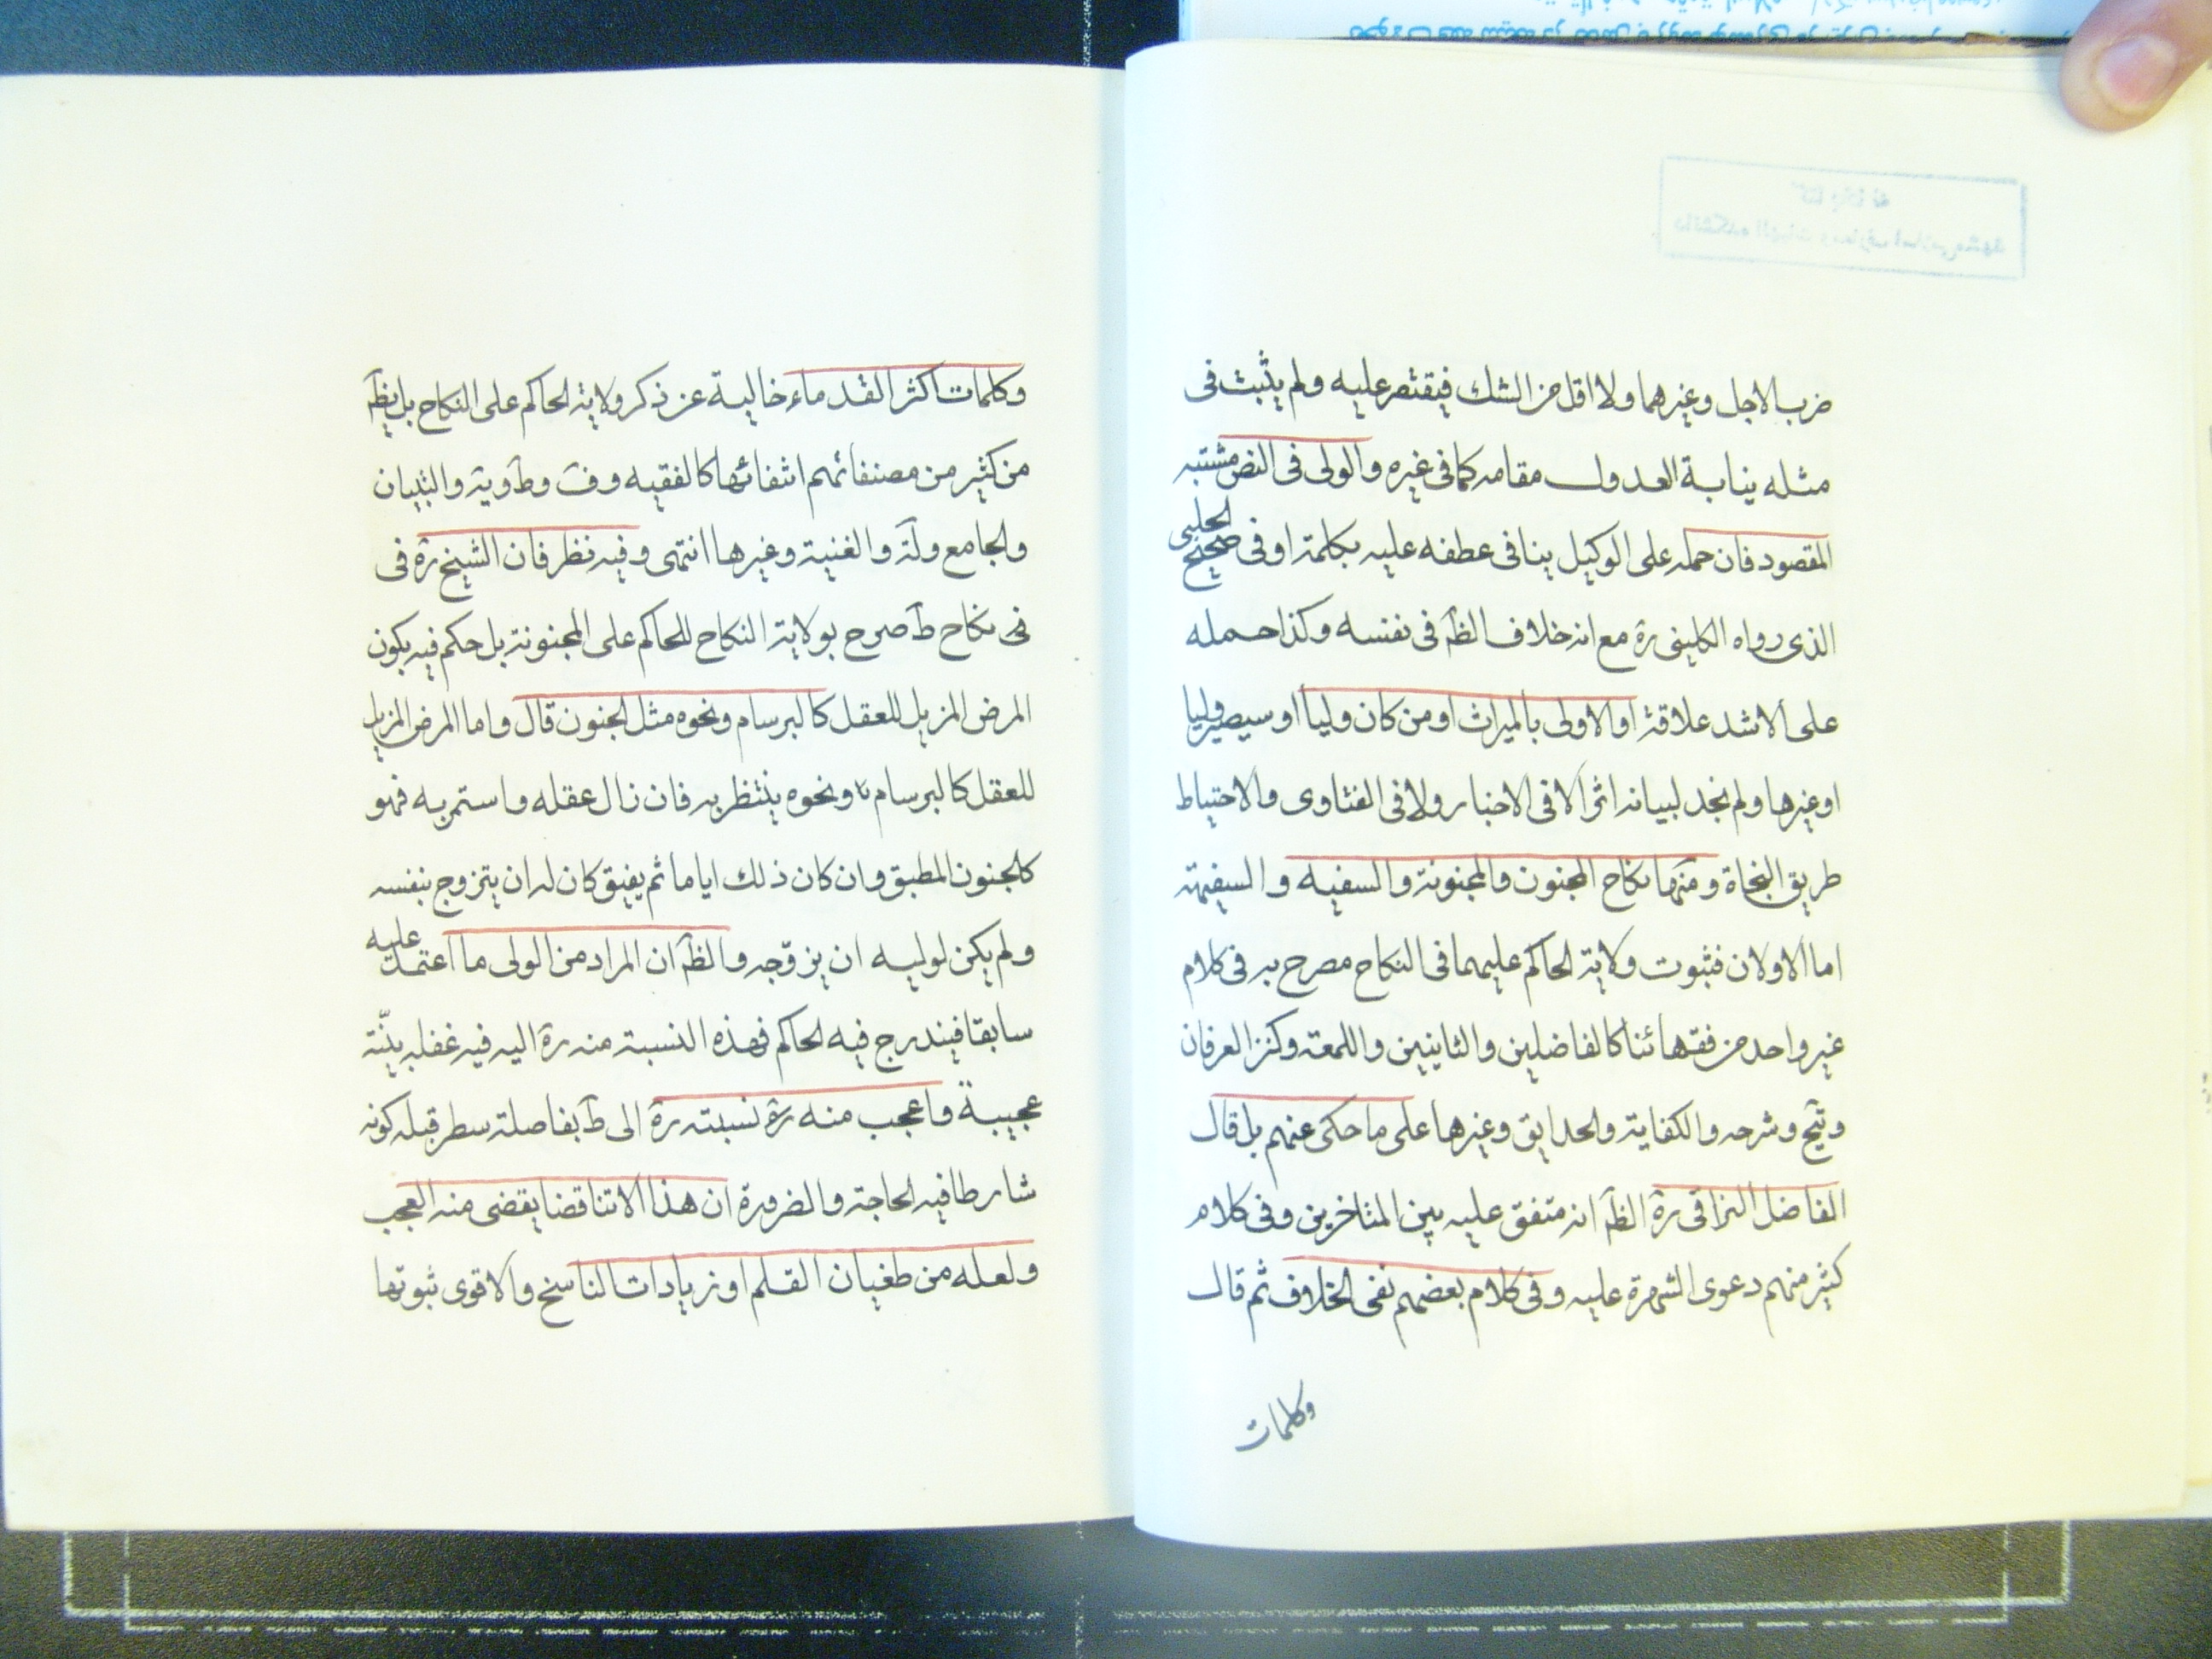 ضرب الاجل وغيرهما ولا اقل من الشك فيقتصر عليه ولم يثبت فى
مثله ينابة العدول مقامه كما فى غيره والولى فى النص مشتبه
المقصود فان حمله على الوكيل ينافى عطفه عليه بكلمة او فى صحيح الحلبى
الذى رواه الكلينى ره مع انه خلاف الظ فى نفسه وكذا حمله
على الاشد علاقة او الاولى بالميراث او من كان وليا او سيصير وليا
او غيرها ولم نجد لبيانه اثرا لا فى الاخبار ولا فى الفتاوى والاحتياط
طريق النجاة ومنها نكاح المجنون والمجنونة والسفيه والسفيهة
اما الاولان فثبوت ولاية الحاكم عليهما فى النكاح مصرح به فى كلام
غير واحد من فقهائنا كالفاضلين والثانيين واللمعة وكنز العرفان
ويح وشرحه والكفاية والحدايق وغيرها على ما حكى عنهم بل قال
الفاضل النراقى ره الظ انه متفق عليه بين المتاخرين وفى كلام
كثير منهم دعوى الشهرة عليه وفى كلام بعضهم نفى الخلاف ثم قال
وكلمات
وكلمات اكثر القدماء خالية عن ذكر ولاية الحاكم على النكاح بل يظ
من كثير من مصنفاتهم انتفائها كالفقيه وف وط وية والتبيان
والجامع ولة والغنية وغيرها انتهى وفيه نظر فان الشيخ ره فى
فى نكاح ط صرح بولاية النكاح للحاكم على المجنونة بل حكم فيه بكون
المرض المزيل للعقل كالبرسام ونحوه مثل الجنون قال واما المرض المزيل
للعقل كالبرسام ونحوه ينتظر به فان زال عقله واستمر به فهو
كالجنون المطبق وان كان ذلك اياما ثم يفيق كان له ان يتزوج بنفسه
ولم يكن لوليه ان يزوّجه والظ ان المراد من الولى ما اعتمد عليه
سابقا فيندرج فيه الحاكم فهذه النسبة منه ره اليه فيه غفلة بيّنة
عجيبة واعجب منه ره نسبته ره الى ط بفاصلة سطر قبله كونه
شارطا فيه الحاجة والضرورة ان هذا الا تناقضا يقضى منه العجب
ولعله من طغيان القلم او زيادات الناسخ والاقوى ثبوتها